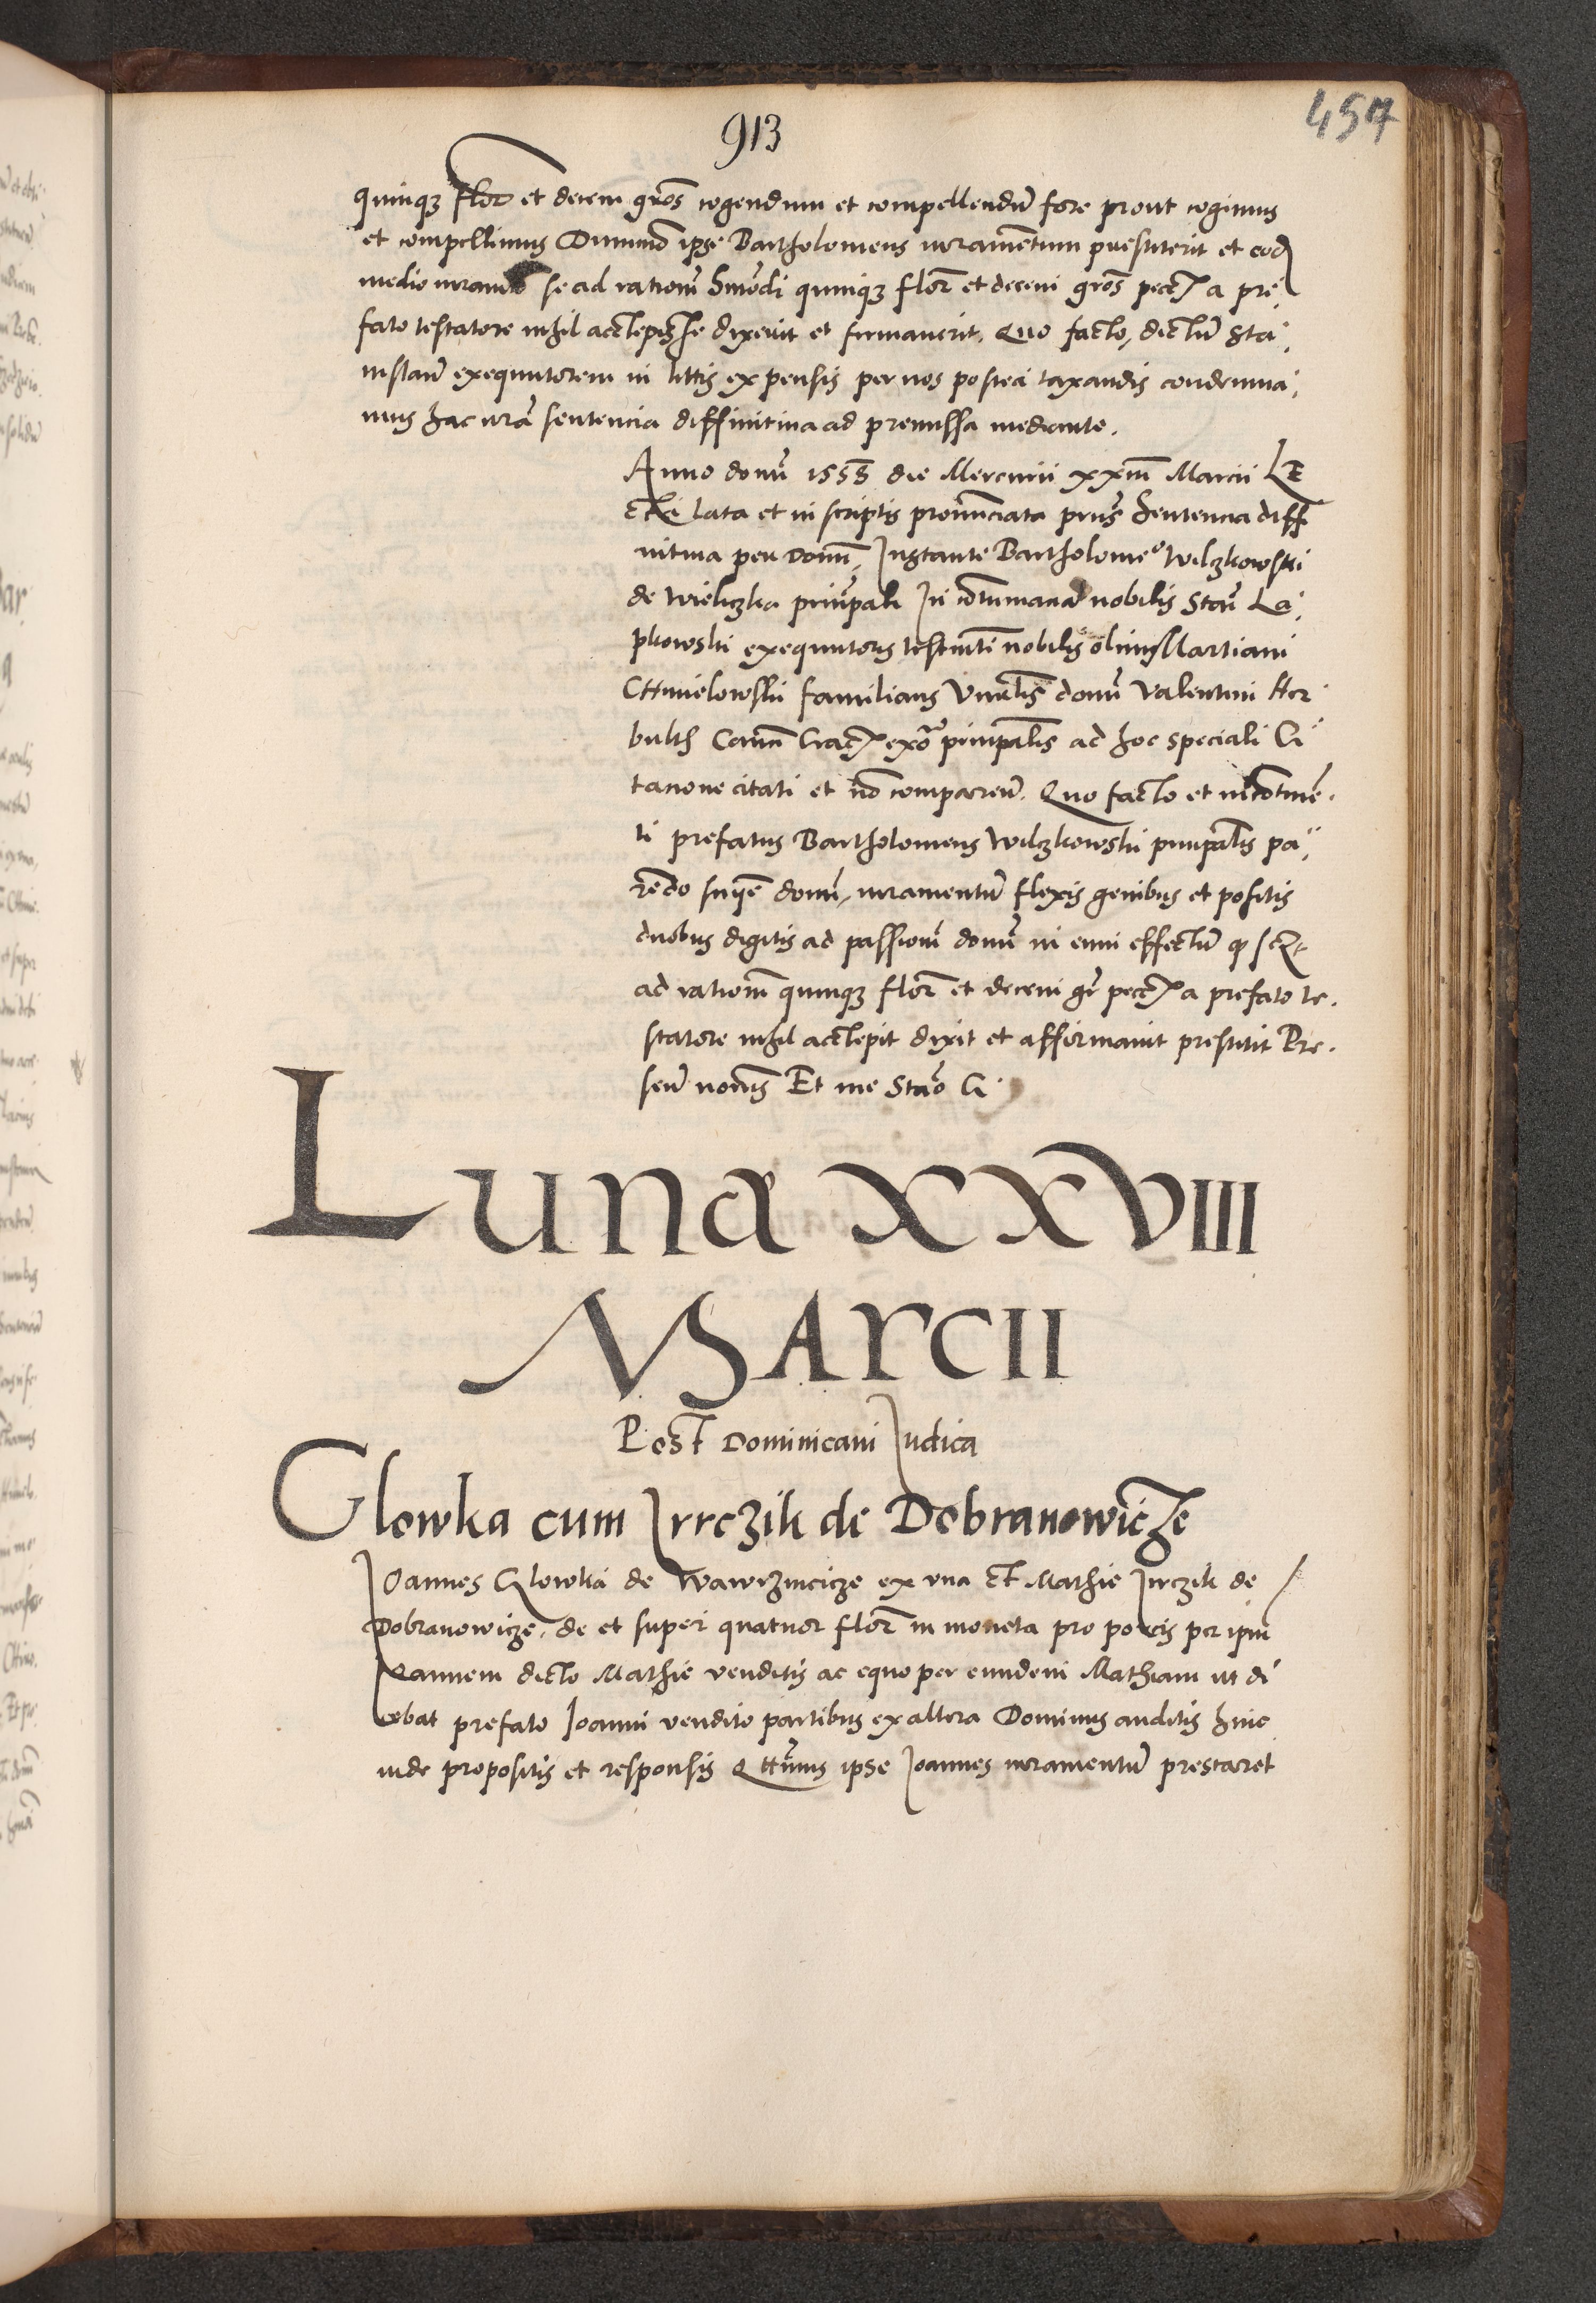 913
457
quinq3 flor et decem gros cogendum et compellendū fore prout cogimus
et compellimus Dummo ipse Bartholomeus iuramentum prestiterit et eod
medio iuramto se ad rationē hmōdi quinq3 flor et decem gros pecc a pre
fato testatore nihil accepisse dixerit et firmauerit. Quo facto, dictū Sta
nislaū exequutorem in littis expensis per nos postea taxandis condemna
mus hac nrā sentencia diffinitiua ad premissa mediante.
Anno domī 1558 die Mercurii xxiii Marcii LE
cta lata et in scriptis pronūciata prīs sentencia diffi
nitiua per Domī, Instante Bartholomeo Wilczkowski
de Wieliczka principali In contumacia nobilis Stan La
pkowski exequutoris testmti nobilis olim Martiani
CHmielowski familiaris Vnrlis domī Valentini Her
burth Canci Crac exōr principalis ad hoc speciali Ci
tacione citati et nō comparen. Quo facto et incōtinē
ti prefatus Bartholomeus Wilczkowski principalis pa
rēdo snīe domī, iuramentū flexis genibus et positis
duobus digitis ad passionē domī in eum effectū q sc3t
ad rationē quinq3 flor et decem gr pecc a prefato te
statore nihil accepit dixit et affirmauit prestitit Pre
sen notis Et me Stāo G
Lunæ XXVIII
MARCII
Post Dominicam Iudica
Glowka cum Irczik de Dobranowicze
IOannes Glowka de Wawrzincicze ex vna et Mathie Irczik de
Dobranowicze, de et super quatuor flor in moneta pro porcis per ipm
Ioannem dicto Mathie venditis ac equo per eundem Mathiam ut di
cebat prefato Ioanni vendito partibus ex altera Dominus auditis hinc
inde propositis et responsis Qttinus ipse Ioannes iuramentū prestaret